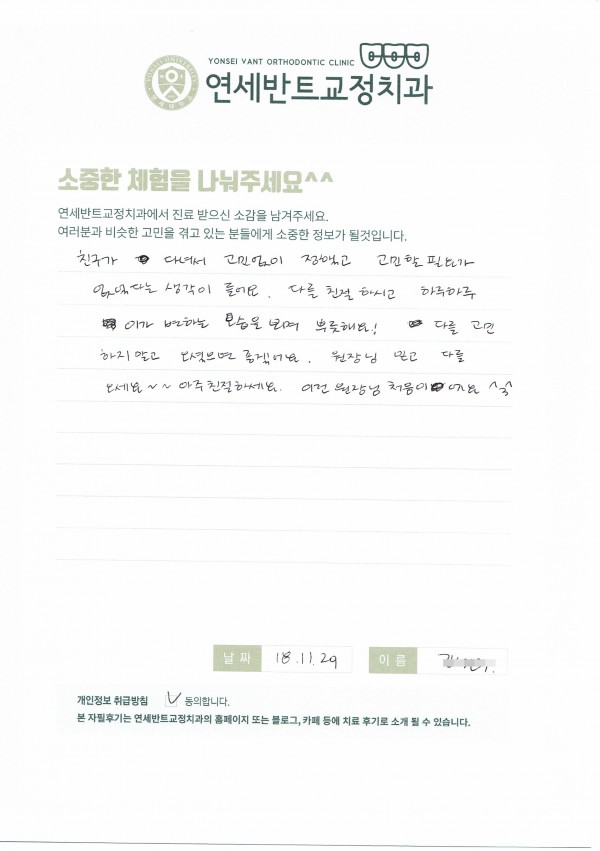 YONSEI VANT ORTHODONTIC CLINIC
연세반트교정치과
소중한 체험을 나눠주세요^^
연세반트교정치과에서 진료 받으신 소감을 남겨주세요.
여러분과 비슷한 고민을 겪고 있는 분들에게 소중한 정보가 될것입니다.
친구가 다녀서 고민없이 정했고 고민할 필요가
없었다는 생각이 들어요. 다들 친절하시고 하루하루
이가 변하는 모습을 보며 뿌듯해요! 다들 고민
하지말고 오셨으면 좋겠어요. 원장님 믿고 다들
오세요~~ 아주 친절하세요. 이런 원장님 처음이에요 ^^
날짜 18.11.29 이름
개인정보 취급방침 V 동의합니다.
본 자필후기는 연세반트교정치과의 홈페이지 또는 블로그, 카페 등에 치료 후기로 소개 될 수 있습니다.